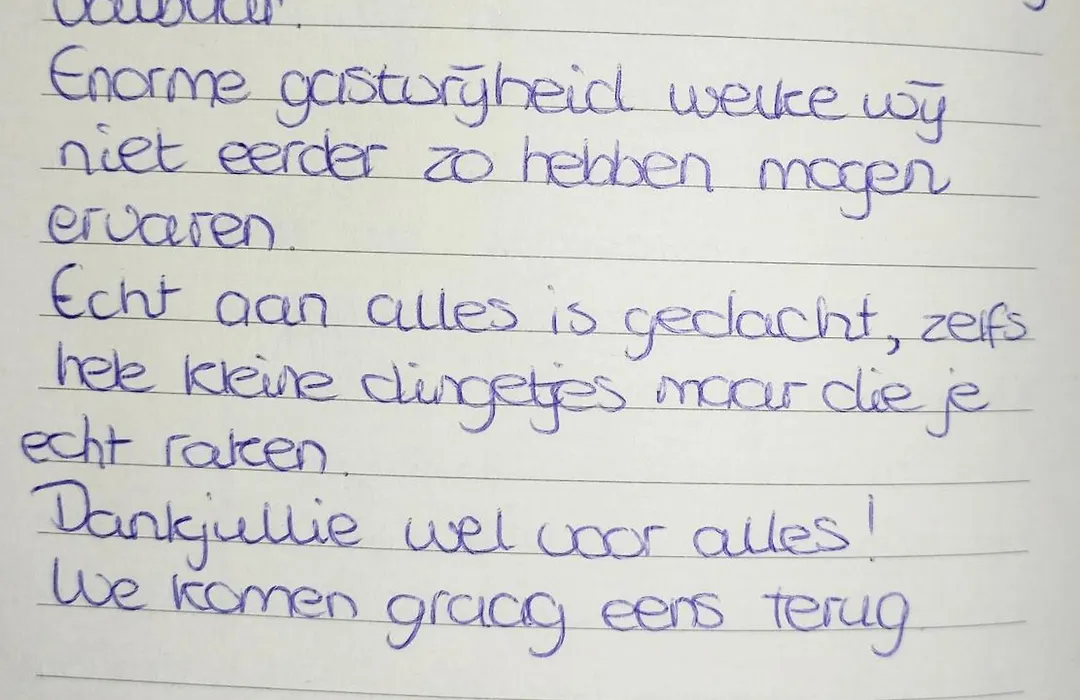 Enorme gastvrijheid welke wij
niet eerder zo hebben mogen
ervaren.
Echt aan alles is gedacht, zelfs
hele kleine dingetjes maar die je
echt raken.
Dankjullie wel voor alles!
We komen graag eens terug